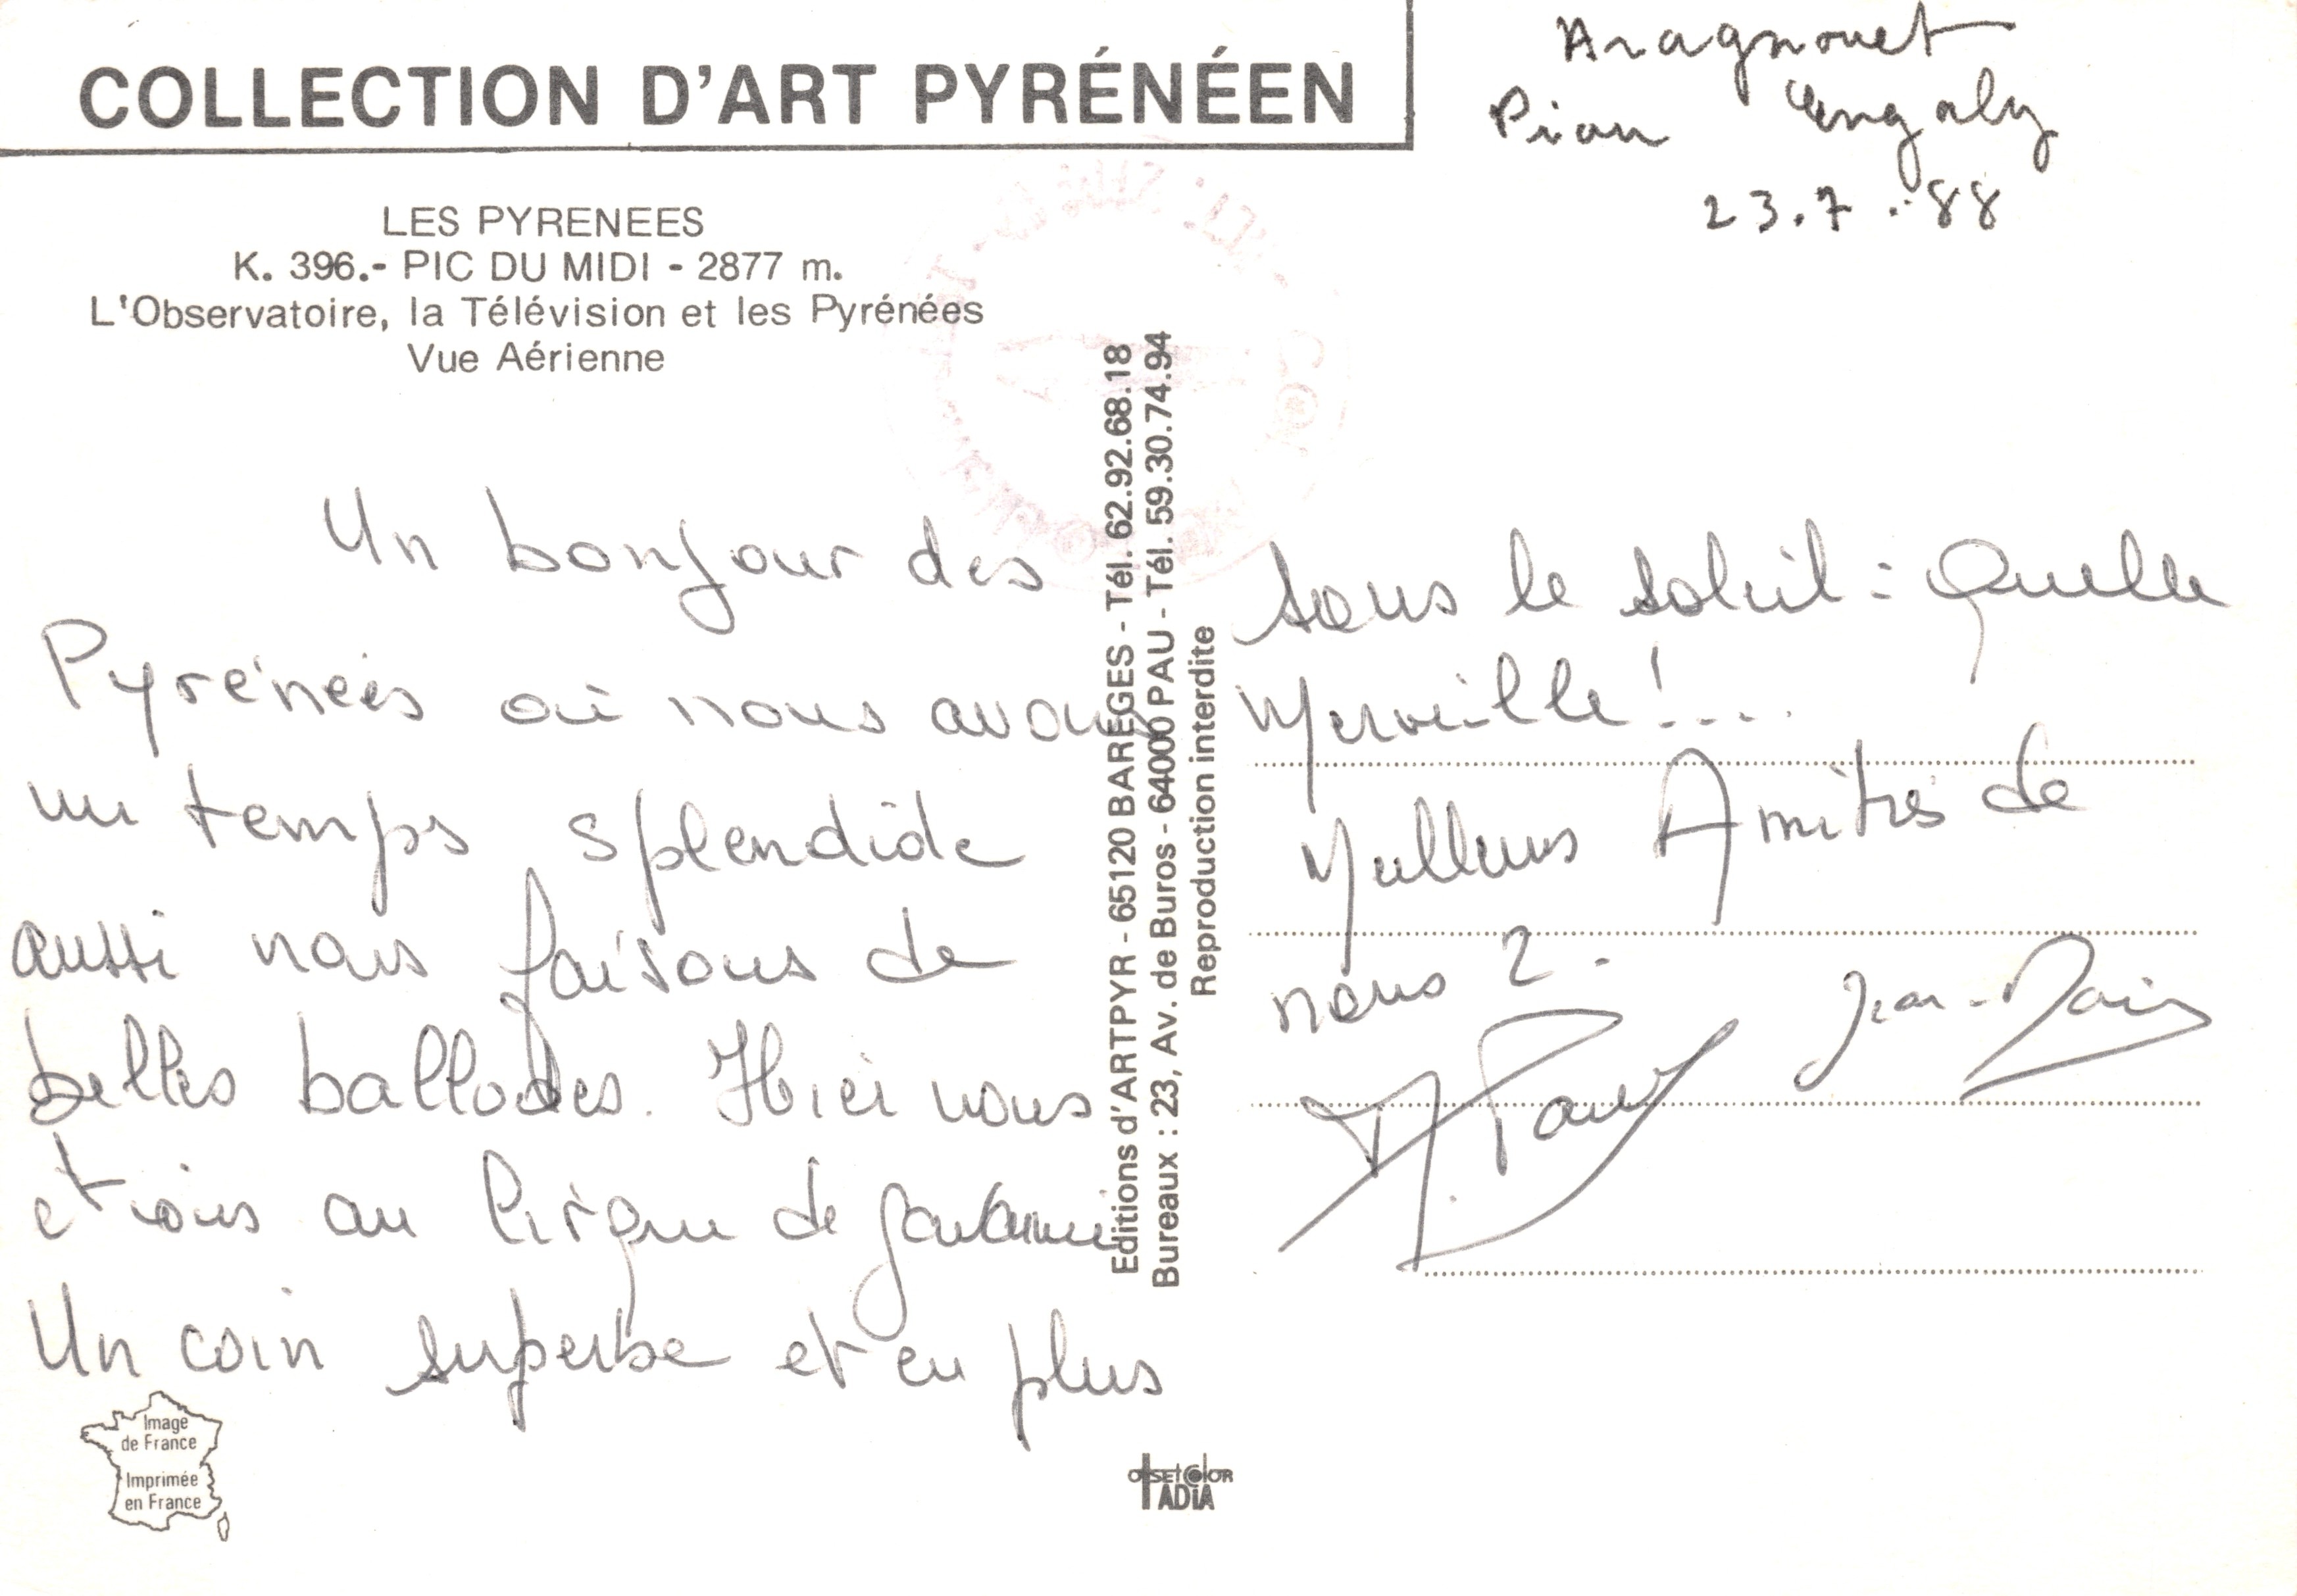 COLLECTION D'ART PYRÉNÉEN
LES PYRENEES
K. 396.- PIC DU MIDI - 2877 m.
L'Observatoire, la Télévision et les Pyrénées
Vue Aérienne
Aragnouet
Piau Engaly
23.7.88
Un bonjour des
Pyrénées où nous avons
un temps splendide
aussi nous faisons de
belles ballades. Hier nous
etions au Cirque de
Un coin superbe et en plus
Editions d'ARTPYR - 65120 BARÈGES - Tél. 62.92.68.18
Bureaux : 23, Av. de Buros - 64000 PAU - Tél. 59.30.74.94
Reproduction interdite
sous le soleil : Quelle
Merveille !...
Meilleures Amitiés de
nous 2.
Jean-
Image
de France
Imprimée
en France
OffSEt COlOR
TADIA